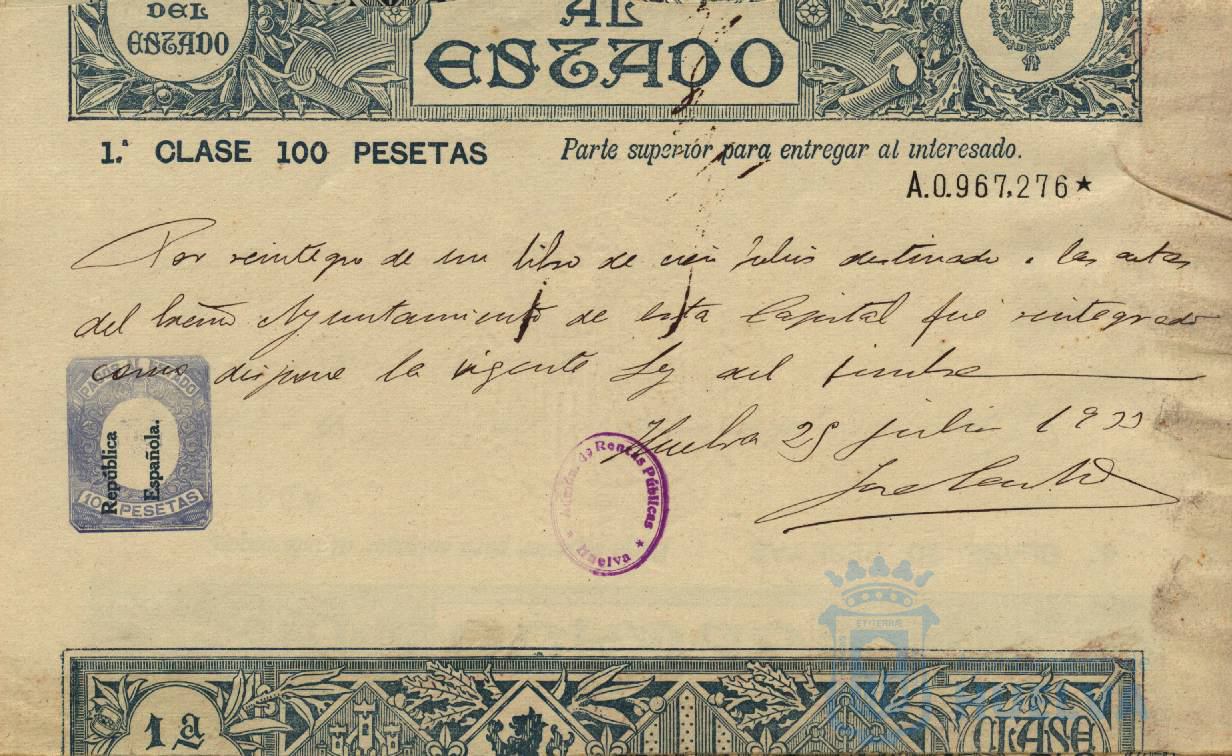 DEL
ESTADO
AL
ESTADO
1.ª CLASE 100 PESETAS
Parte superior para entregar al interesado.
A.0.967,276★
Por reintegro de un libro de cien folios destinado a las actas
del Excmo Ayuntamiento de esta Capital fue reintegrado
como dispone la vigente Ley del timbre
Huelva 25 julio 1933
PAGOS AL ESTADO
República
Española.
100 PESETAS
de Rentas Públicas
★ Huelva ★
ET TERRÆ
1ª
CLASE